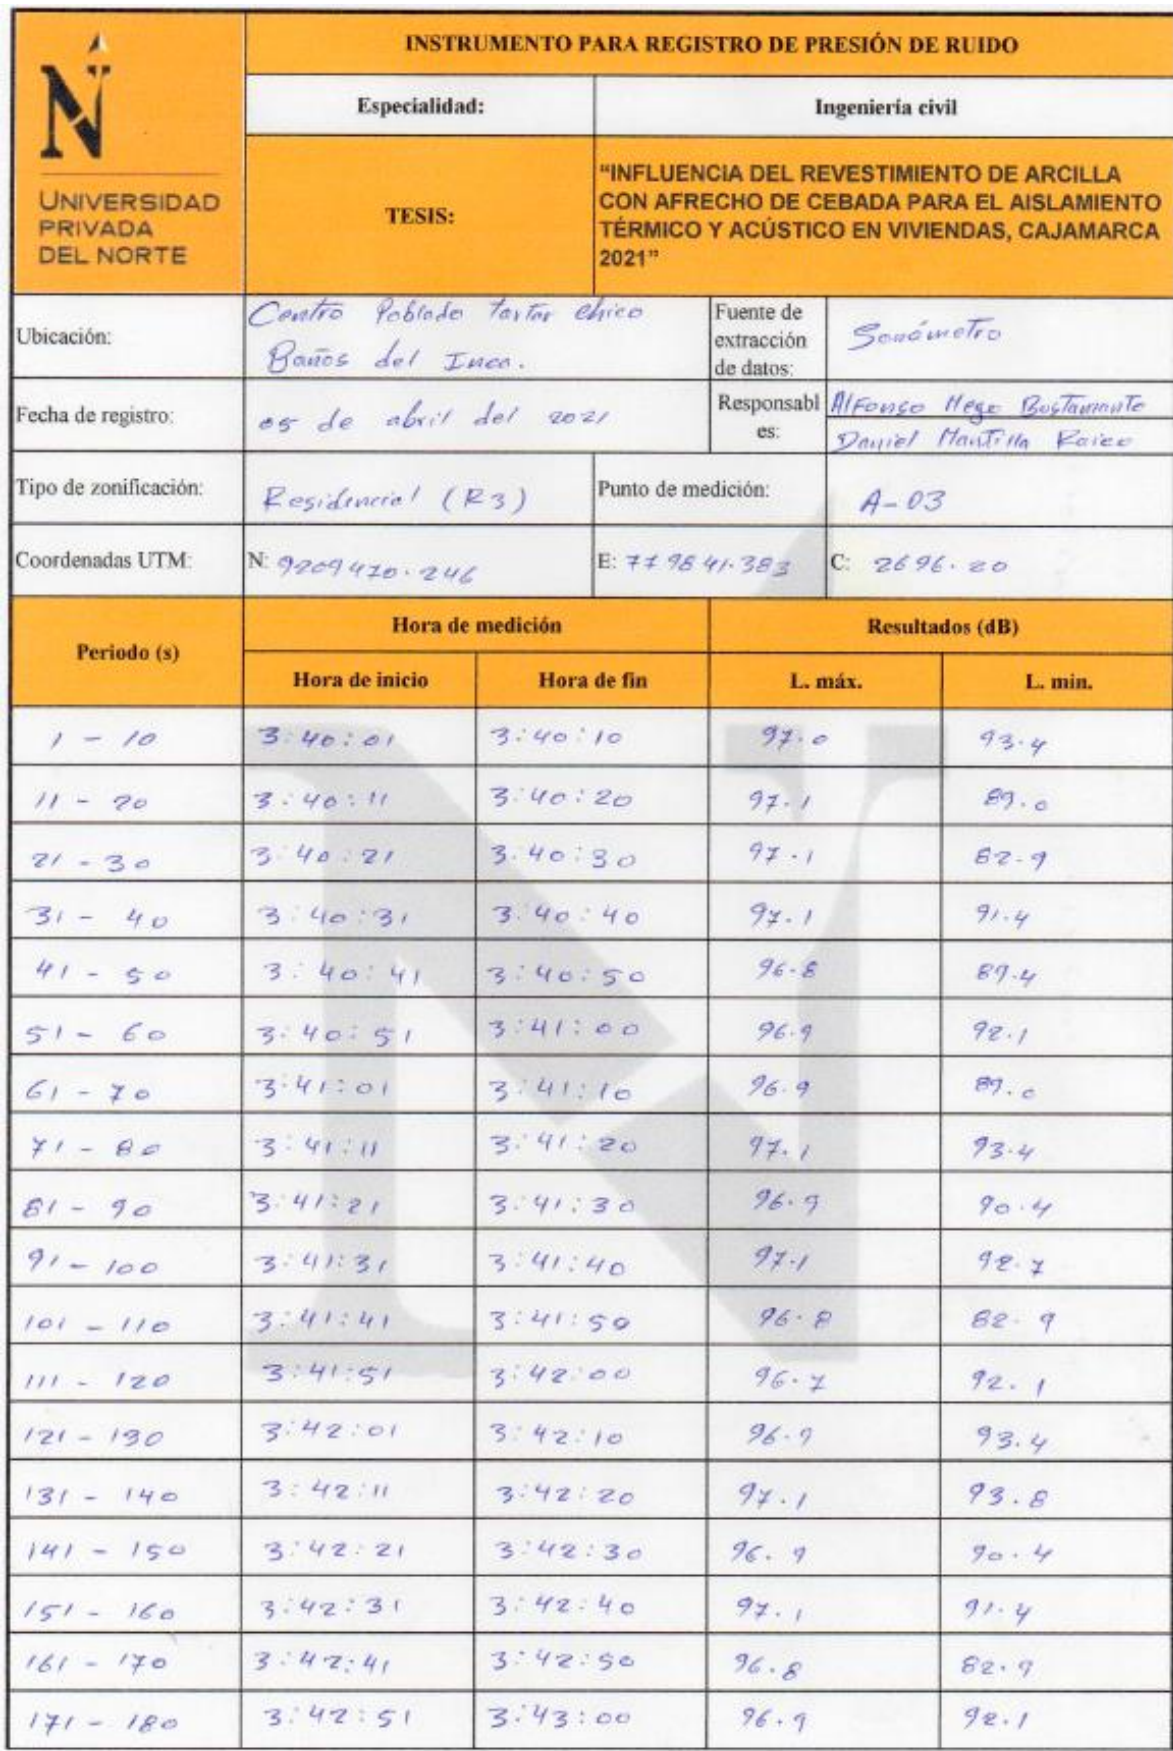 N
UNIVERSIDAD
PRIVADA
DEL NORTE
INSTRUMENTO PARA REGISTRO DE PRESIÓN DE RUIDO
Especialidad: Ingeniería civil
TESIS:
“INFLUENCIA DEL REVESTIMIENTO DE ARCILLA
CON AFRECHO DE CEBADA PARA EL AISLAMIENTO
TÉRMICO Y ACÚSTICO EN VIVIENDAS, CAJAMARCA
2021”
Ubicación:
Centro Poblado tartar chico
Baños del Inca.
Fuente de
extracción
de datos:
Sonómetro
Fecha de registro: 05 de abril del 2021
Responsabl
es:
Alfonso Mego Bustamante
Daniel Mantilla Raico
Tipo de zonificación: Residencial (R3) Punto de medición: A-03
Coordenadas UTM: N: 9209470.246 E: 779841.383 C: 2696.20
Periodo (s) Hora de medición Resultados (dB)
Hora de inicio Hora de fin L. máx. L. min.
1 - 10 3:40:01 3:40:10 97.0 93.4
11 - 20 3:40:11 3:40:20 97.1 89.0
21 - 30 3:40:21 3:40:30 97.1 82.9
31 - 40 3:40:31 3:40:40 97.1 91.4
41 - 50 3:40:41 3:40:50 96.8 89.4
51 - 60 3:40:51 3:41:00 96.9 92.1
61 - 70 3:41:01 3:41:10 96.9 89.0
71 - 80 3:41:11 3:41:20 97.1 93.4
81 - 90 3:41:21 3:41:30 96.9 90.4
91 - 100 3:41:31 3:41:40 97.1 92.7
101 - 110 3:41:41 3:41:50 96.8 82.9
111 - 120 3:41:51 3:42:00 96.7 92.1
121 - 130 3:42:01 3:42:10 96.9 93.4
131 - 140 3:42:11 3:42:20 97.1 93.8
141 - 150 3:42:21 3:42:30 96.9 90.4
151 - 160 3:42:31 3:42:40 97.1 91.4
161 - 170 3:42:41 3:42:50 96.8 82.9
171 - 180 3:42:51 3:43:00 96.9 92.1